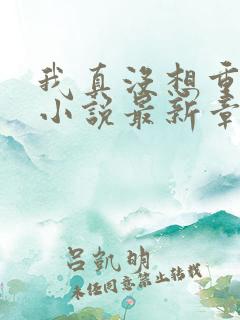 我真没想重
小说最新章
吕凯明
未经同意禁止转载